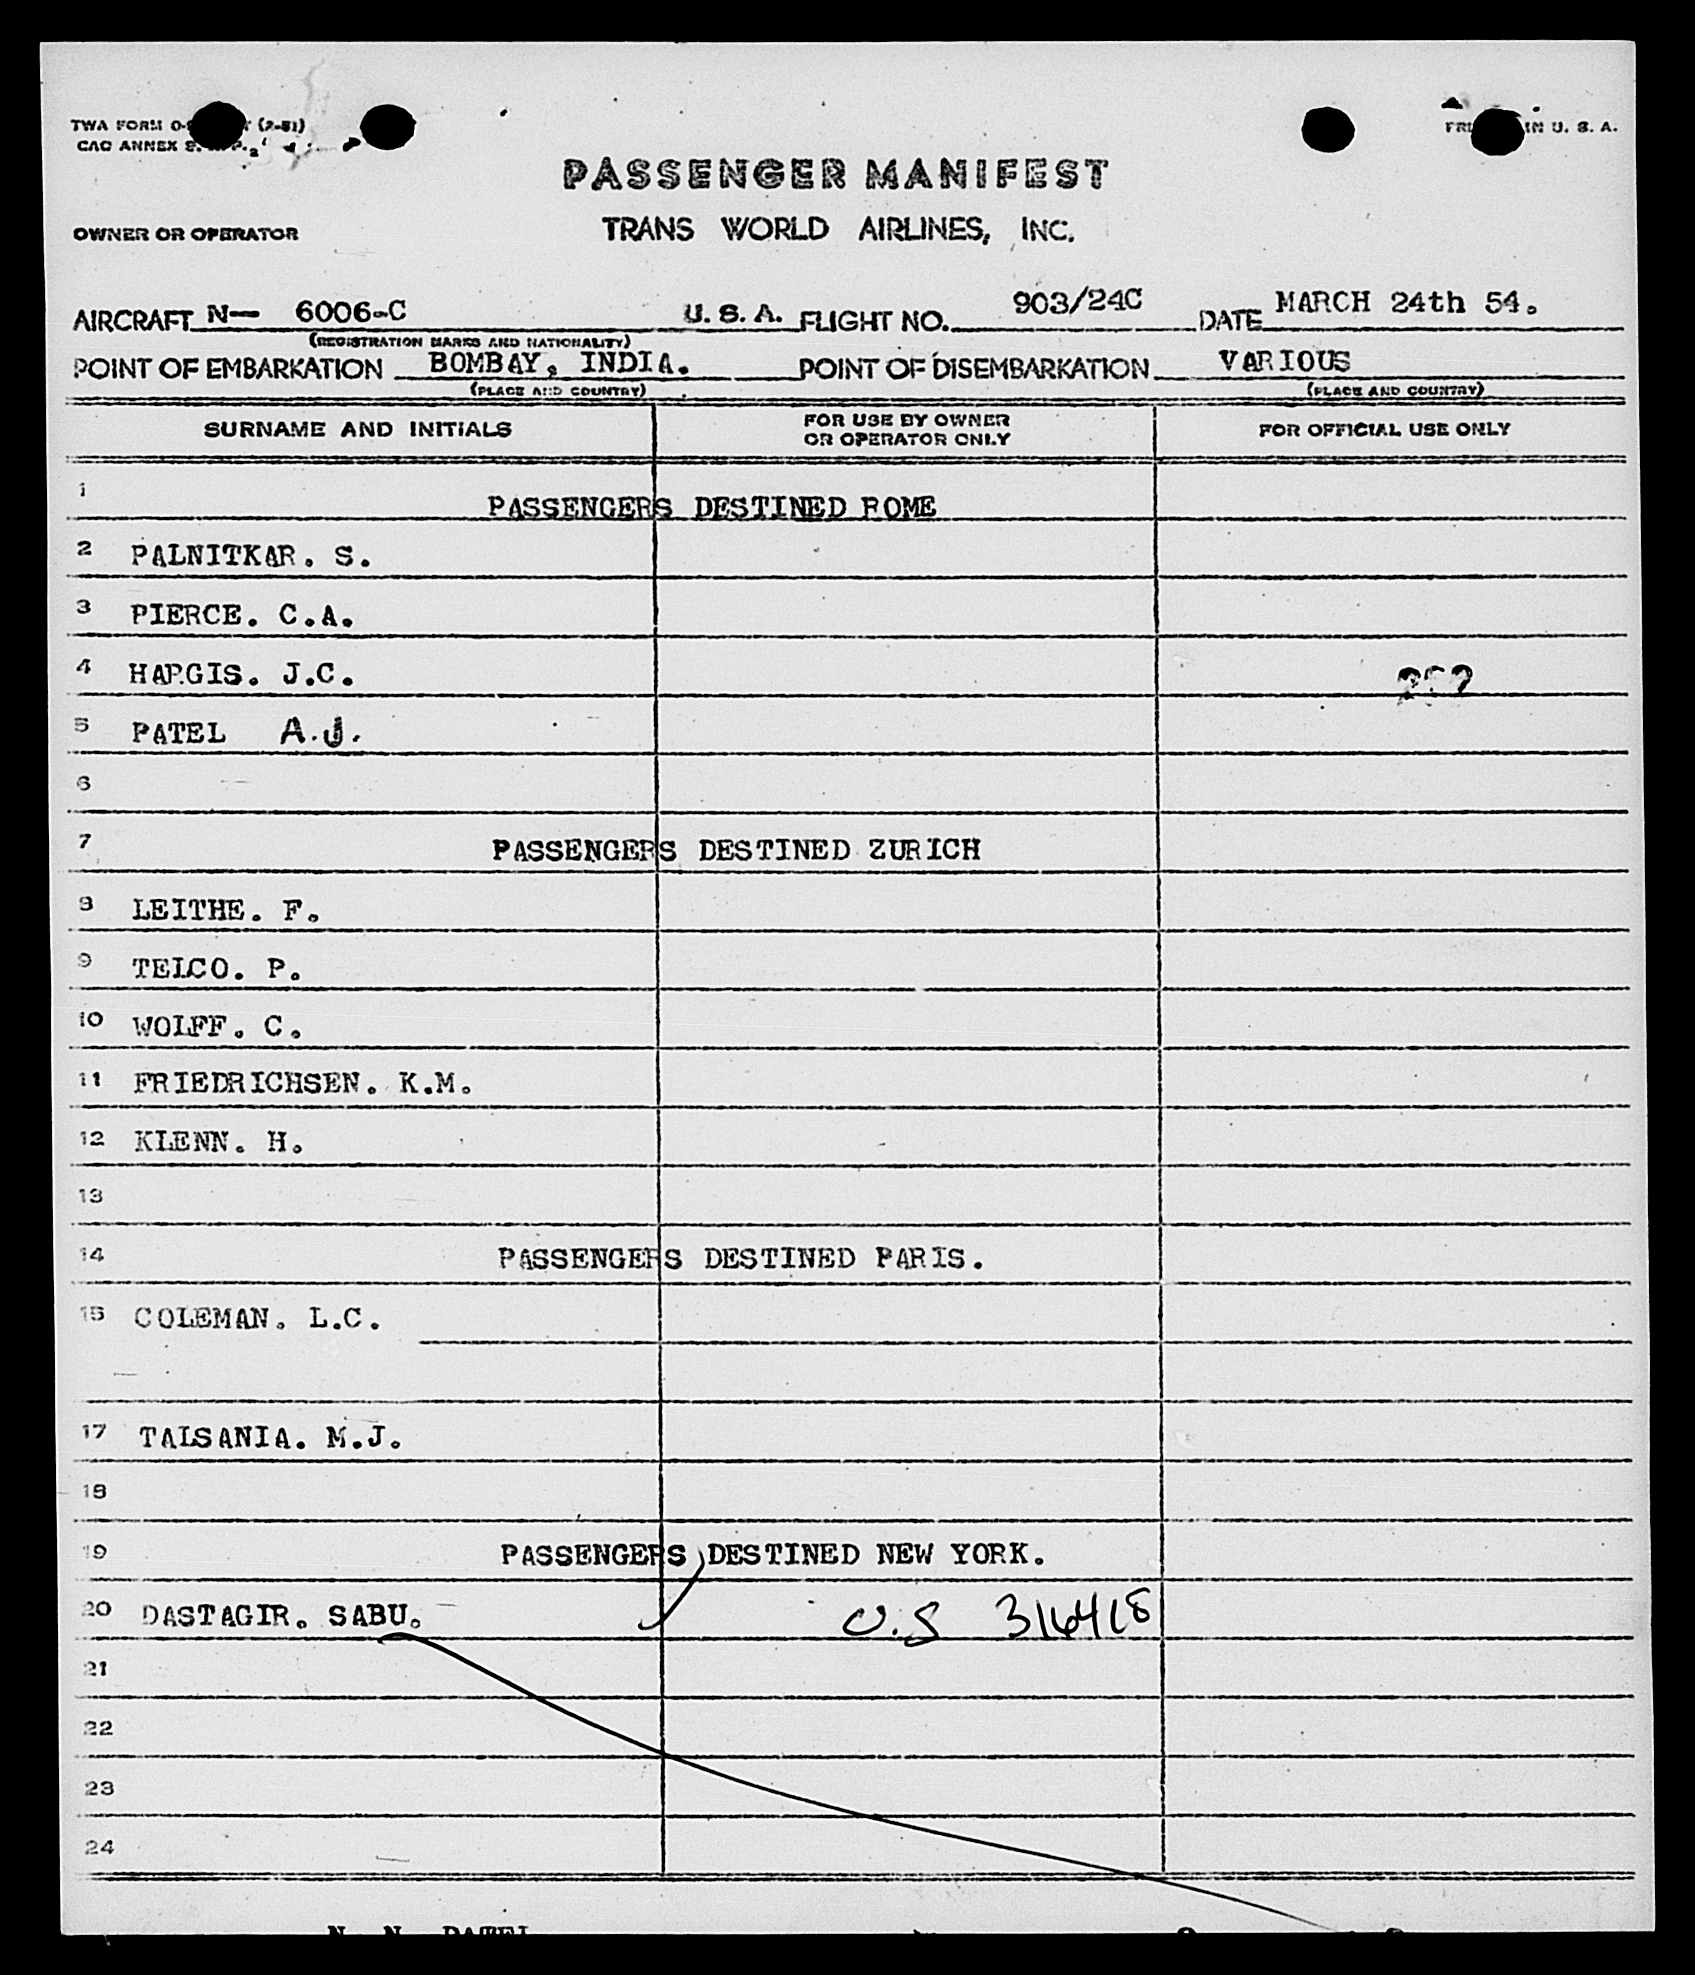 TWA FORM (2-51)
CAO ANNEX
IN U. S. A.
PASSENGER MANIFEST
OWNER OR OPERATOR TRANS WORLD AIRLINES, INC.
AIRCRAFT N— 6006-C U. S. A. FLIGHT NO. 903/24C DATE MARCH 24th 54.
(REGISTRATION MARKS AND NATIONALITY)
POINT OF EMBARKATION BOMBAY, INDIA. POINT OF DISEMBARKATION VARIOUS
(PLACE AND COUNTRY) (PLACE AND COUNTRY)
SURNAME AND INITIALS FOR USE BY OWNER OR OPERATOR ONLY FOR OFFICIAL USE ONLY
1 PASSENGERS DESTINED ROME
2 PALNITKAR. S.
3 PIERCE. C.A.
4 HARGIS. J.C.
5 PATEL A.J.
6
7 PASSENGERS DESTINED ZURICH
8 LEITHE. F.
9 TELCO. P.
10 WOLFF. C.
11 FRIEDRICHSEN. K.M.
12 KLENN. H.
13
14 PASSENGERS DESTINED PARIS.
15 COLEMAN. L.C.
17 TALSANIA. M.J.
18
19 PASSENGERS DESTINED NEW YORK.
20 DASTAGIR. SABU. U.S 316418
21
22
23
24
N. N. PATEL